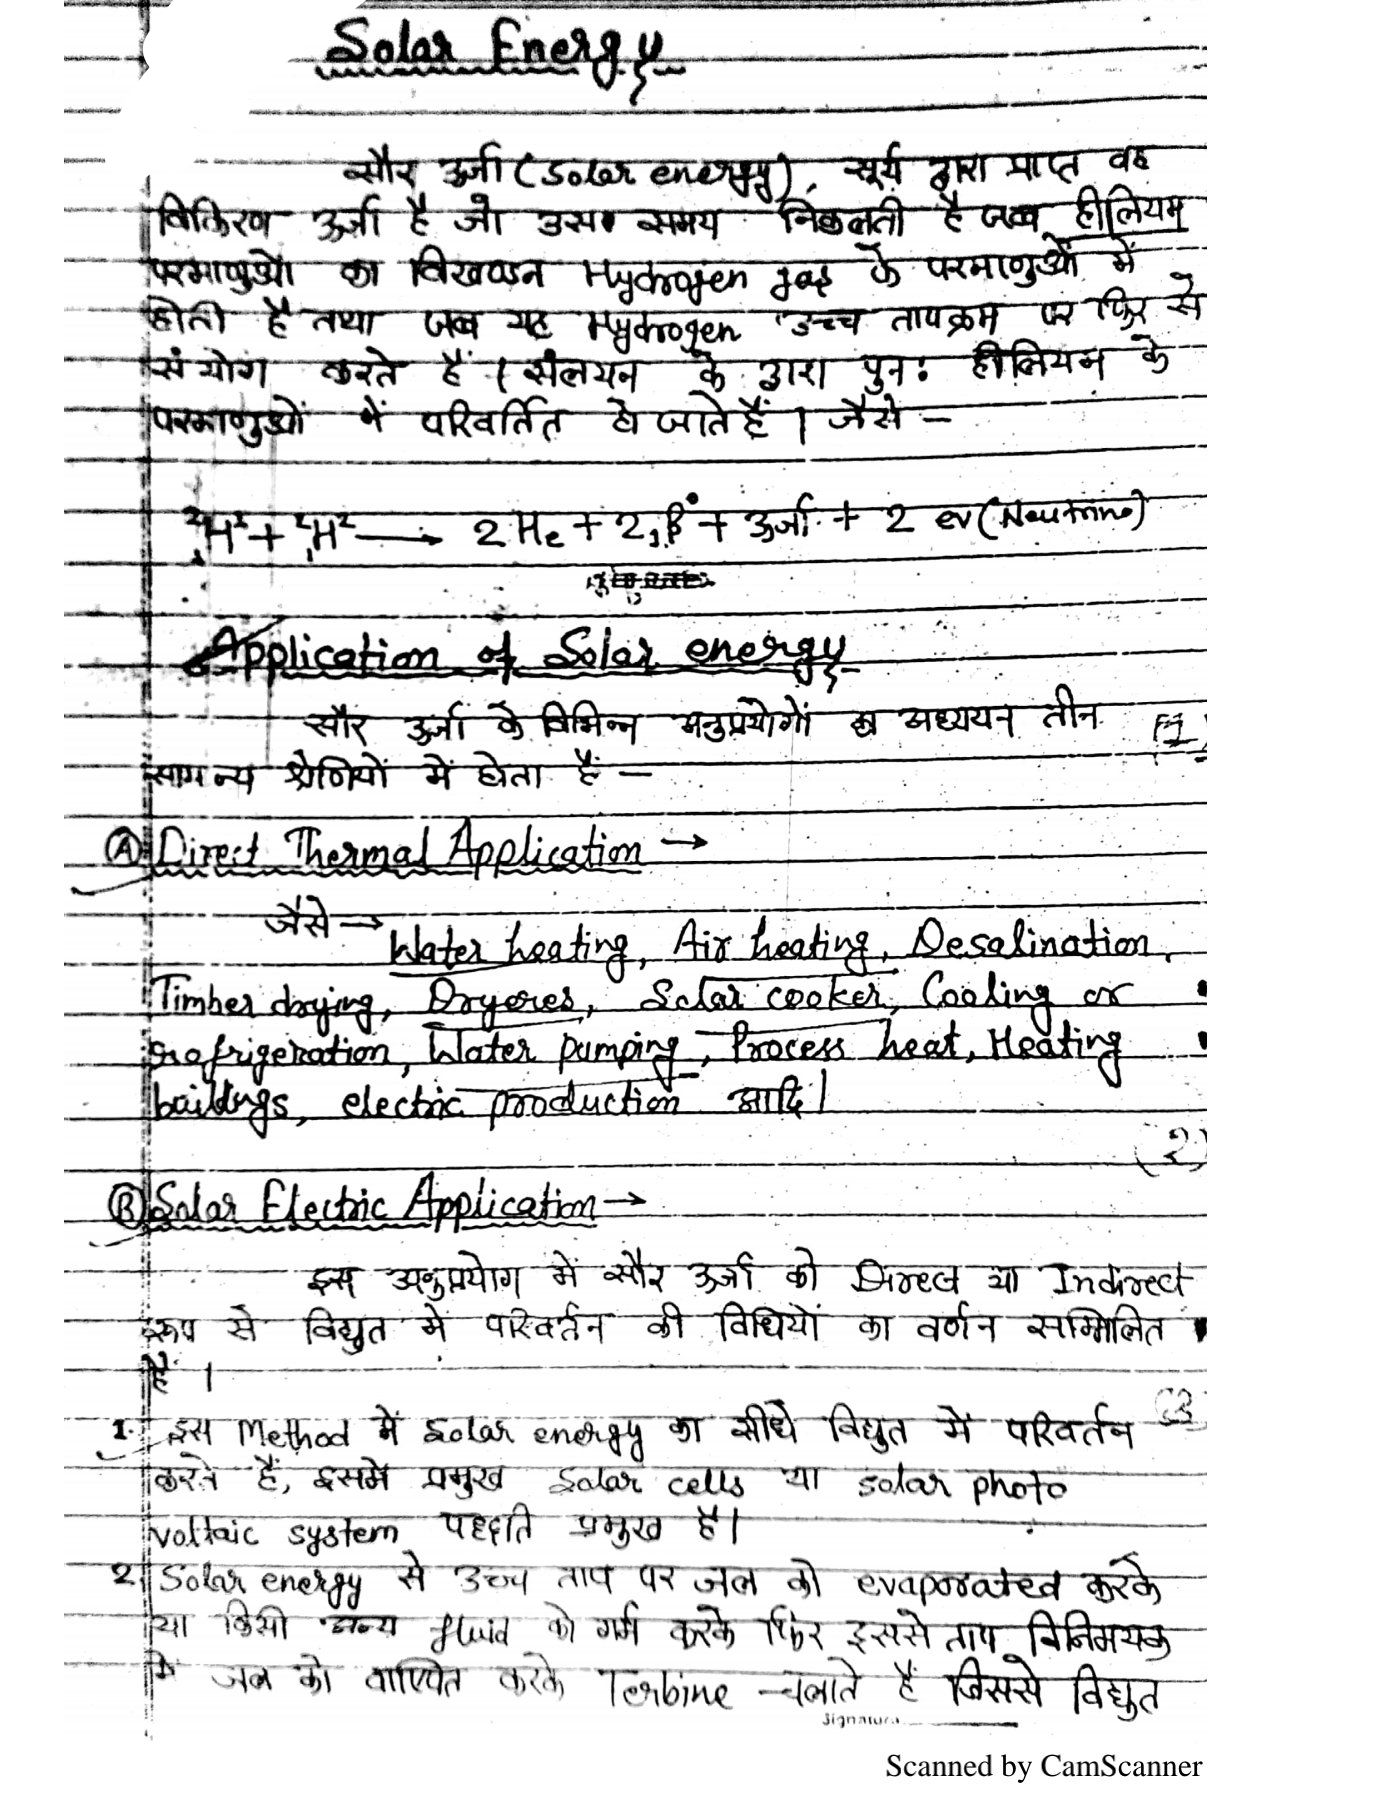 Solar Energy
सौर ऊर्जा (Solar energy), सूर्य द्वारा प्राप्त वह
विकिरण ऊर्जा है जो उस समय निकलती है जब हीलियम
परमाणुओं का विखण्डन Hydrogen gas के परमाणुओं में
होती है तथा जब यह Hydrogen उच्च तापक्रम पर फिर से
संयोग करते हैं। संलयन के द्वारा पुनः हीलियम के
परमाणुओं में परिवर्तित हो जाते हैं। जैसे –
²₁H² + ²₁H² → 2 He + 2₁β⁰ + ऊर्जा + 2 ev (Neutrino)
Application of Solar energy
सौर ऊर्जा के विभिन्न अनुप्रयोगों का अध्ययन तीन
सामान्य श्रेणियों में होता है –
(A) Direct Thermal Application →
जैसे → Water heating, Air heating, Desalination,
Timber drying, Dryeres, Solar cooker, Cooling or
refrigeration, Water pumping, Process heat, Heating
buildings, electric production आदि।
(2)
(B) Solar Electric Application →
इस अनुप्रयोग में सौर ऊर्जा को Direct या Indirect
रूप से विद्युत में परिवर्तन की विधियों का वर्णन सम्मिलित
है।
1. इस Method में Solar energy का सीधे विद्युत में परिवर्तन
करते हैं, इसमें प्रमुख Solar cells या solar photo
voltaic system पद्धति प्रमुख है।
2. Solar energy से उच्च ताप पर जल को evaporated करके
या किसी अन्य fluid को गर्म करके फिर इससे ताप विनिमयक
में जल को वाष्पित करके Terbine चलाते हैं जिससे विद्युत
Signature
Scanned by CamScanner